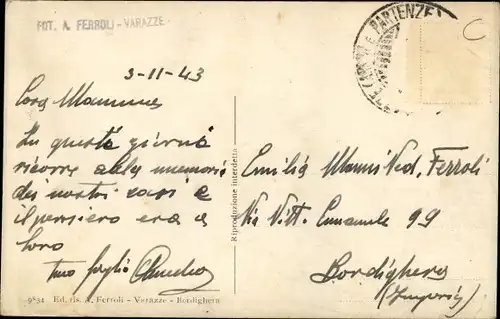 FOT. A. FERROLI - VARAZZE
PARTENZE
C
3-11-43
Cara Mamma
In questi giorni
ricorre alla memoria
dei nostri cari e
il pensiero era a
loro
tuo figlio Amedeo
Riproduzione interdetta
Emilia Manni Ved. Ferroli
Via Vitt. Emanuele 99
Bordighera
(Imperia)
9834 Ed. ris. A. Ferroli - Varazze - Bordighera